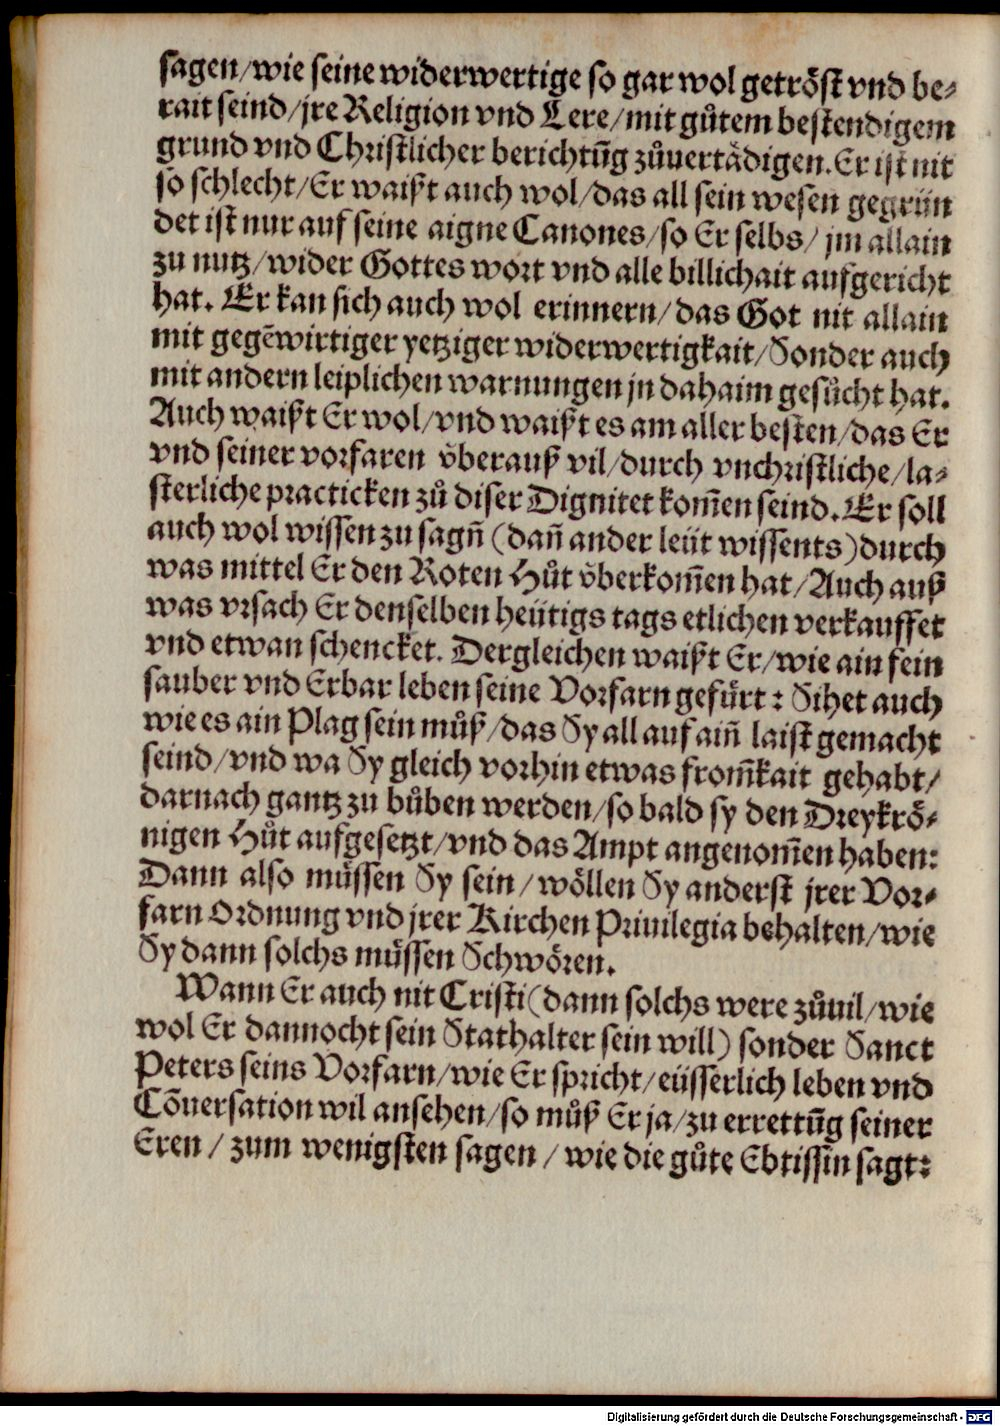 sagen/wie seine widerwertige so gar wol getröst vnd be-
rait seind/jre Religion vnd Lere/mit gůtem bestendigem
grund vnd Christlicher berichtūg zůuertådigen. Er ist nit
so schlecht/Er waißt auch wol/das all sein wesen gegrün
det ist nur auf seine aigne Canones/so Er selbs/ jm allain
zu nutz/wider Gottes wort vnd alle billichait aufgericht
hat. Er kan sich auch wol erinnern/das Got nit allain
mit gegēwirtiger yetziger widerwertigkait/Sonder auch
mit andern leiplichen warnungen jn dahaim gesůcht hat.
Auch waißt Er wol/vnd waißt es am aller besten/das Er
vnd seiner vorfaren v̊berauß vil/durch vnchristliche/la-
sterliche practicken zů diser Dignitet kom̄en seind. Er soll
auch wol wissen zu sagn̄ (dan̄ ander leüt wissents) durch
was mittel Er den Roten Hůt v̊berkom̄en hat/Auch auß
was vrsach Er denselben heütigs tags etlichen verkauffet
vnd etwan schencket. Dergleichen waißt Er/wie ain fein
sauber vnd Erbar leben seine Vorfarn gefürt: Sihet auch
wie es ain Plag sein můß/das Sy all auf ain̄ laist gemacht
seind/vnd wa Sy gleich vorhin etwas from̄kait gehabt/
darnach gantz zu bůben werden/so bald sy den Dreykrö-
nigen Hůt aufgesetzt/vnd das Ampt angenom̄en haben:
Dann also müssen Sy sein/wöllen Sy anderst jrer Vor-
farn Ordnung vnd jrer Kirchen Priuilegia behalten/wie
Sy dann solchs müssen Schwören.
Wann Er auch nit Cristi (dann solchs were zůuil/wie
wol Er dannocht sein Stathalter sein will) sonder Sanct
Peters seins Vorfarn/wie Er spricht/eüsserlich leben vnd
Cōuersation wil ansehen/so můß Er ja/zu errettūg seiner
Eren/ zum wenigsten sagen/ wie die gůte Ebtissin sagt:
Digitalisierung gefördert durch die Deutsche Forschungsgemeinschaft - DFG